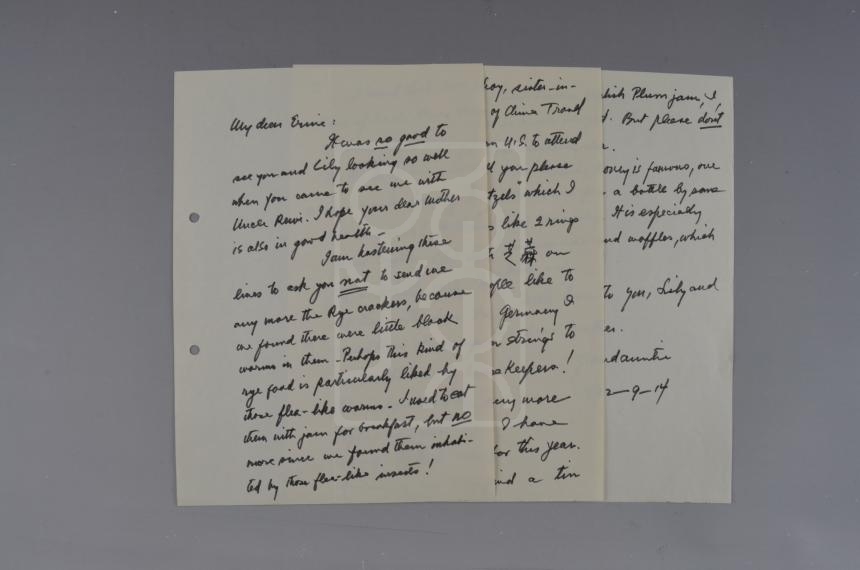 My dear Ernie:
It was so good to
see you and Lily looking so well
when you came to see me with
Uncle Rewi. I hope your dear mother
is also in good health –
I am hastening these
lines to ask you not to send me
any more the Rye crackers, because
we found there were little black
worms in them – Perhaps this kind of
rye food is particularly liked by
those flea-like worms – I used to eat
them with jam for breakfast, but no
more since we found them inhabi-
ted by those flea-like insects!
sister-in-
of China Travel
U.S. to attend
you please
which I
like 2 rings
芝蔴 on
like to
Germany I
strings to
Keepers!
any more
I have
for this year.
a tin
Plum jam, I,
But please don't
is famous, our
a bottle by some
It is especially
waffles, which
to you, Lily and
auntie
2–9–14